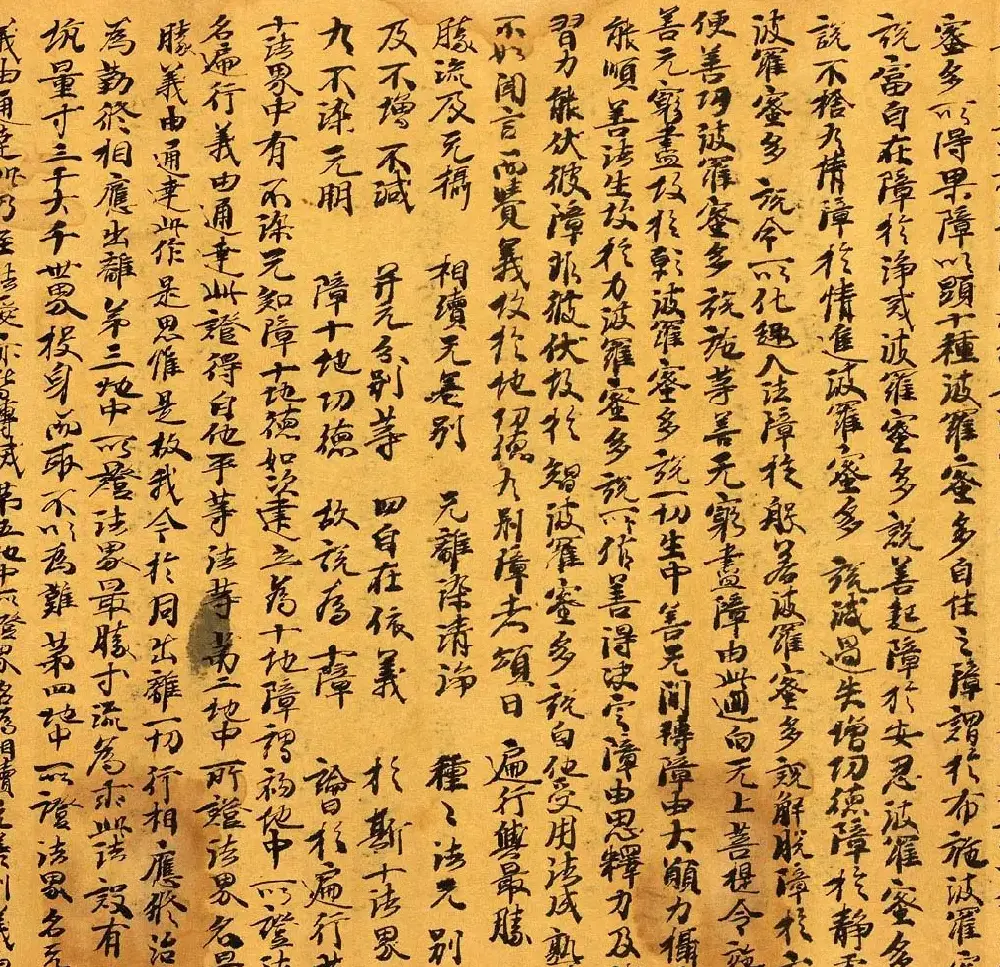 蜜多所得果障以顯十種波羅蜜多自性之障謂於布施波羅蜜
說富自在障於淨戒波羅蜜多說善趣障於安忍波羅蜜多
說不捨有情障於情進波羅蜜多 說減過失增功德障於靜
波羅蜜多說令所化趣入法障於般若波羅蜜多說解脫障於
便善巧波羅蜜多說施等善无窮盡障由此迴向无上菩提令施
善无窮盡故於願波羅蜜多說一切生中善无間轉障由大願力攝
能順善法生故於力波羅蜜多說所作善得決定障由思擇力及
習力能伏彼障非彼伏故於智波羅蜜多說自他受用法成熟
不如聞言而覺義故於地功德有別障者頌曰 遍行與最勝
勝流及无攝 相續无差別 无雜染清淨 種種法无別
及不增不減 并无分別等 四自在依義 於斯十法界
有不染无明 障十地功德 故說為十障 論曰於遍行等
十法界中有不染无知障十地德如次建立為十地障謂初地中所證法
名遍行義由通達此證得自他平等法等第二地中所證法界名最
勝義由通達此作是思惟是故我今於同出離一切行相應修治
為勤修相應出離第三地中所證法界最勝等流為求此法設有
坑量等三千大千世界投身而取不以為難第四地中所證法界名无
義由通達此乃至法愛亦皆轉滅第五地中所證界名為相續无差別義